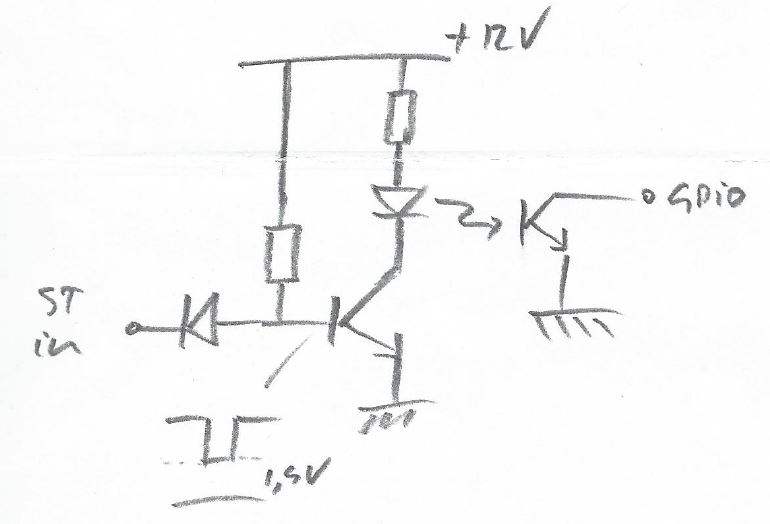 +12V
GPiO
ST
in
1,5V